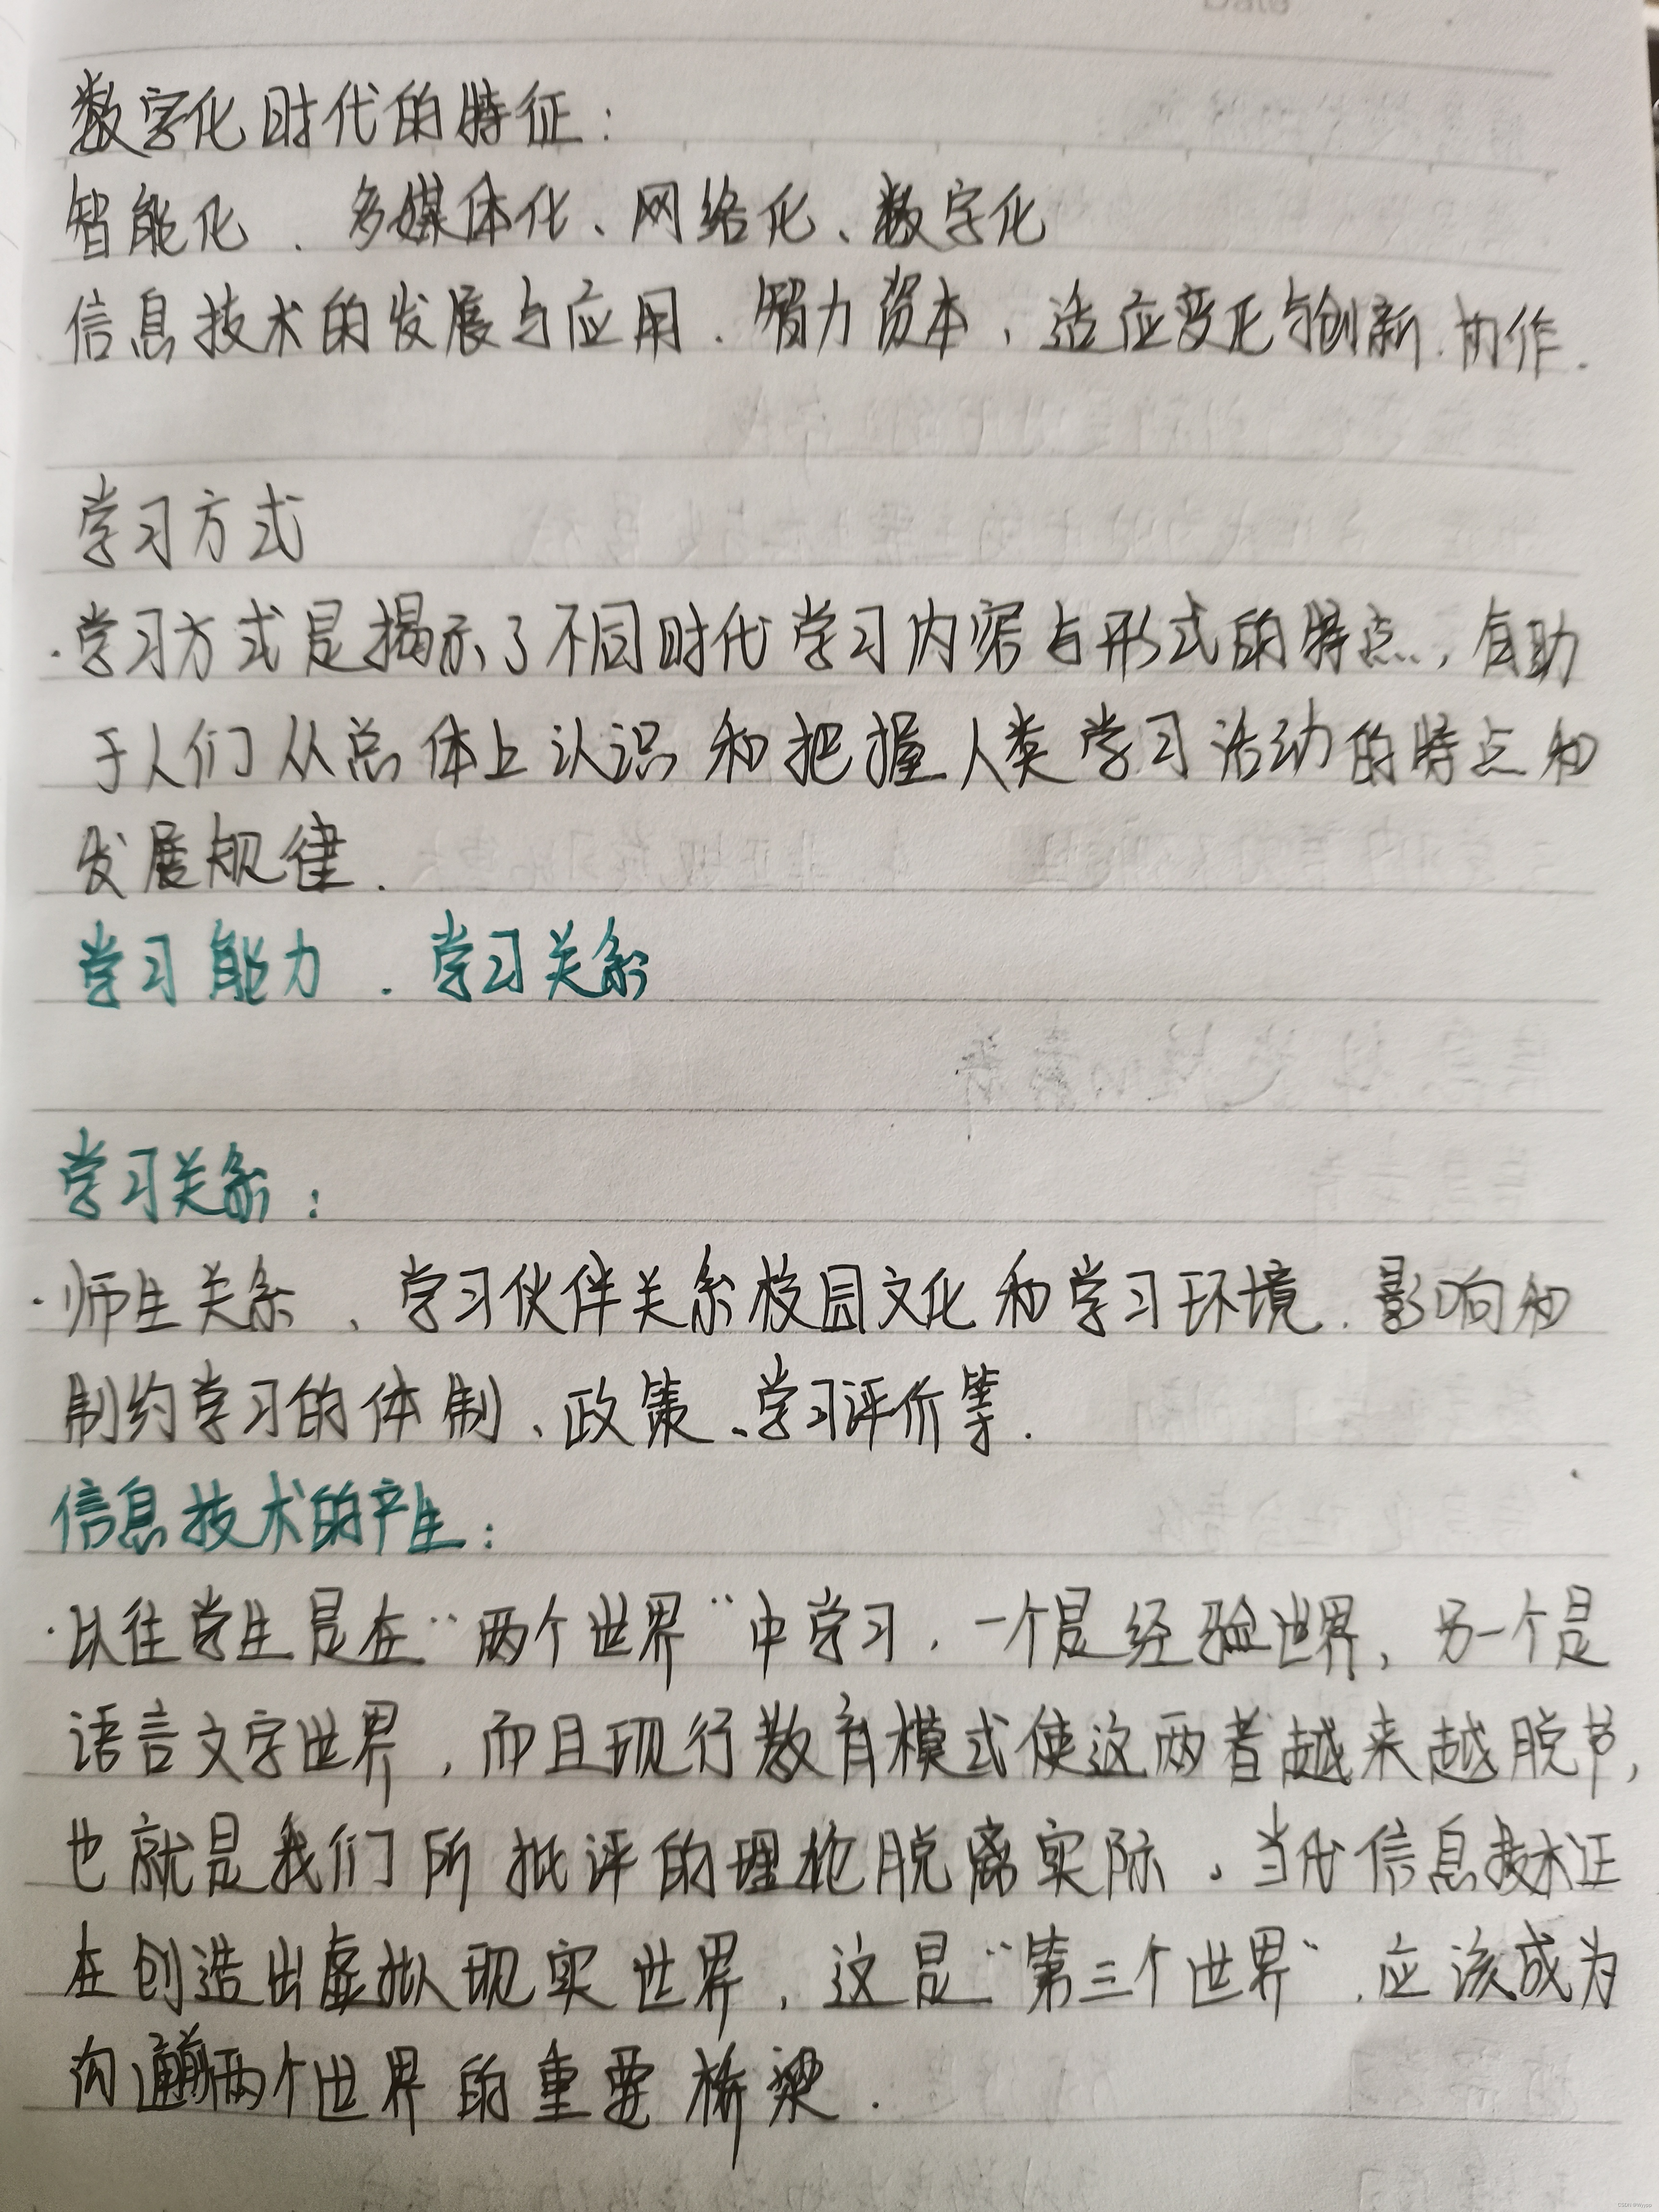 数字化时代的特征：
智能化、多媒体化、网络化、数字化
信息技术的发展与应用、智力资本，适应变化与创新、协作.
学习方式
·学习方式是揭示了不同时代学习内容与形式的特点，有助
于人们从总体上认识和把握人类学习活动的特点和
发展规律.
学习能力、学习关系
学习关系：
·师生关系、学习伙伴关系校园文化和学习环境、影响和
制约学习的体制、政策、学习评价等.
信息技术的产生：
·以往学生是在“两个世界”中学习，一个是经验世界，另一个是
语言文字世界，而且现行教育模式使这两者越来越脱节，
也就是我们所批评的理论脱离实际。当代信息技术正
在创造出虚拟现实世界，这是“第三个世界”，应该成为
沟通前两个世界的重要桥梁.